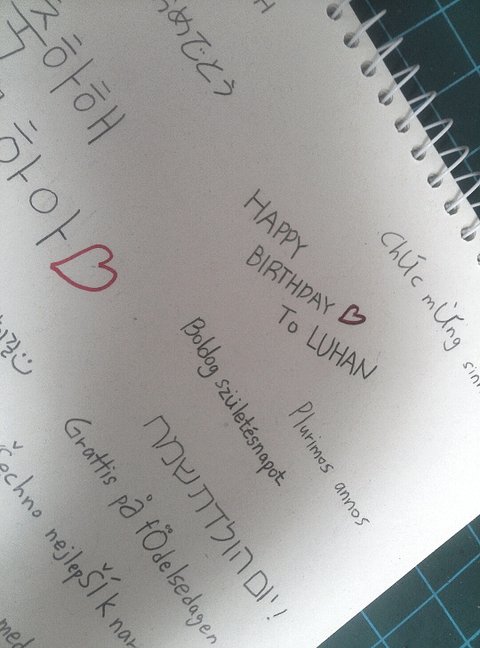 めでとう
하해
HAPPY
BIRTHDAY ♡
To LUHAN
Chúc mừng
Boldog születésnapot
Plurimos annos
יום הולדת שמח!
Grattis på födelsedagen
šechno nejlepší k nar
med